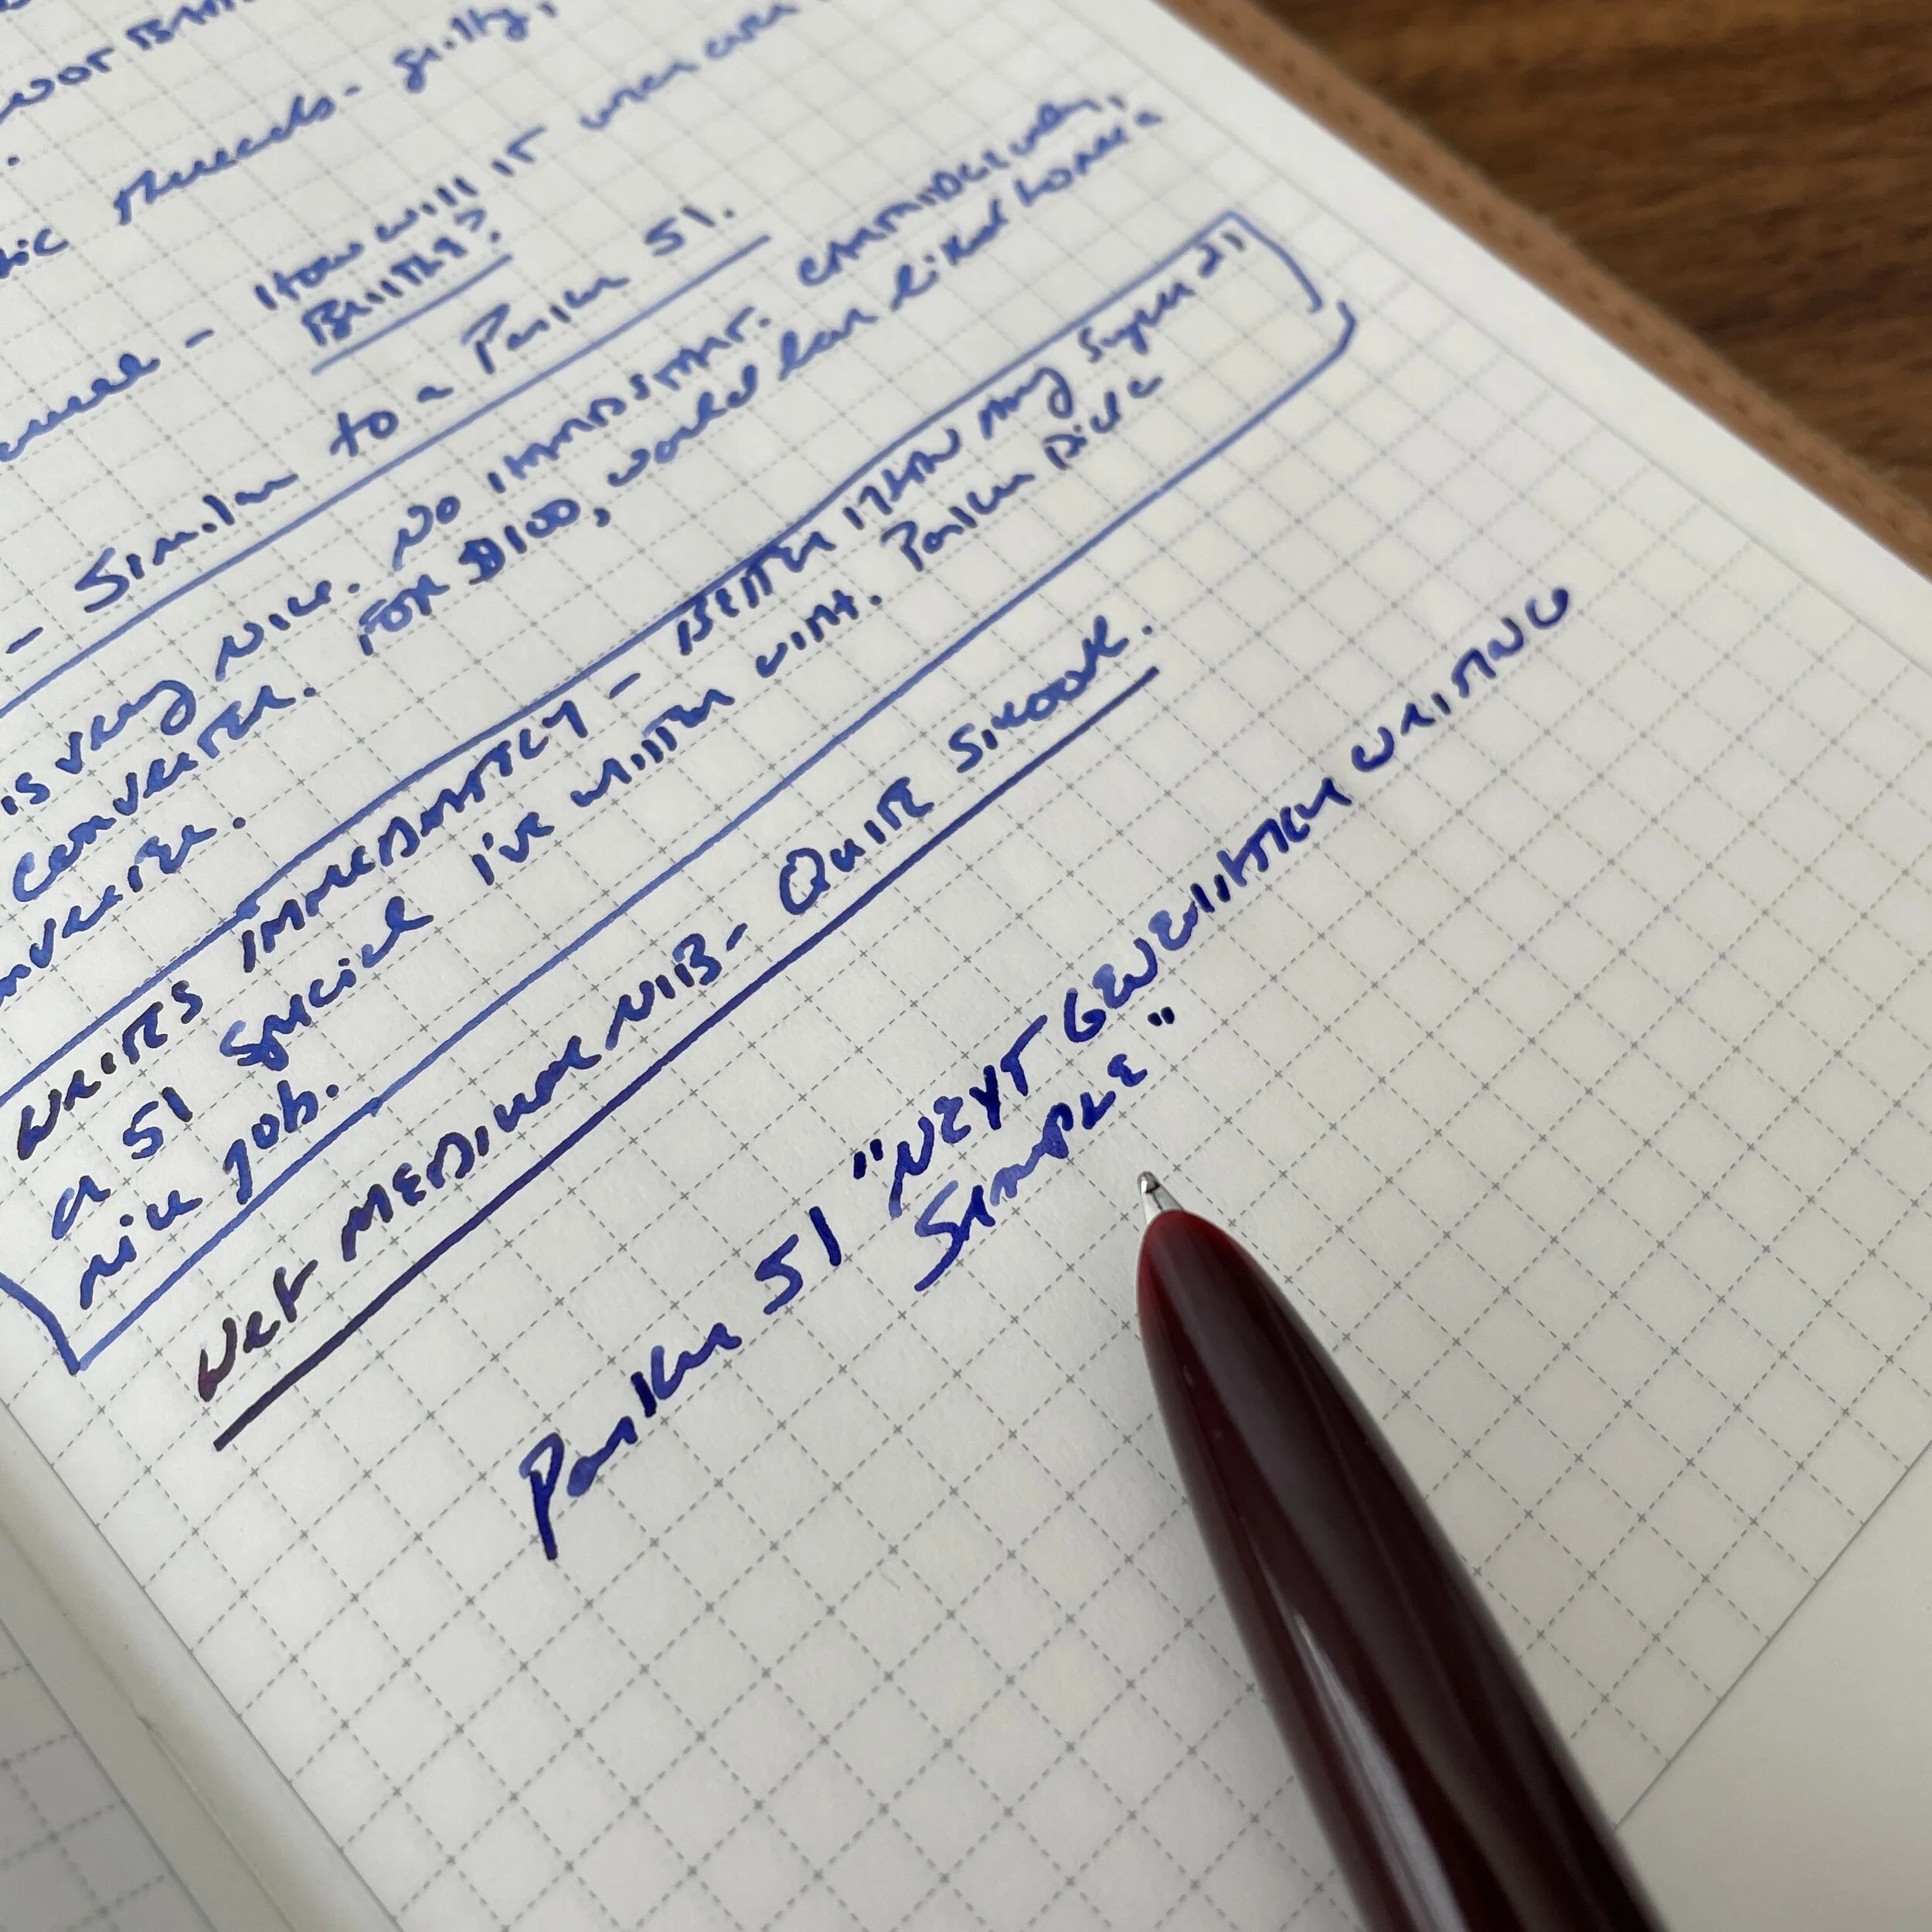 NOT
Threads - guilty,
- How will it wear over
Brittle?
- Similar to a Parker 51.
is very nice. No HARDSTART.
converter. FOR $100, would have liked to have a
converter.
WRITES IMMEDIATELY - BETTER THAN Any Super 21,
a 51 Special I've written with. Parker Did a
nice job.
Wet MEDIUM NIB - Quite SMOOTH.
Parker 51 "NEXT GENERATION WRITING
SAMPLE"